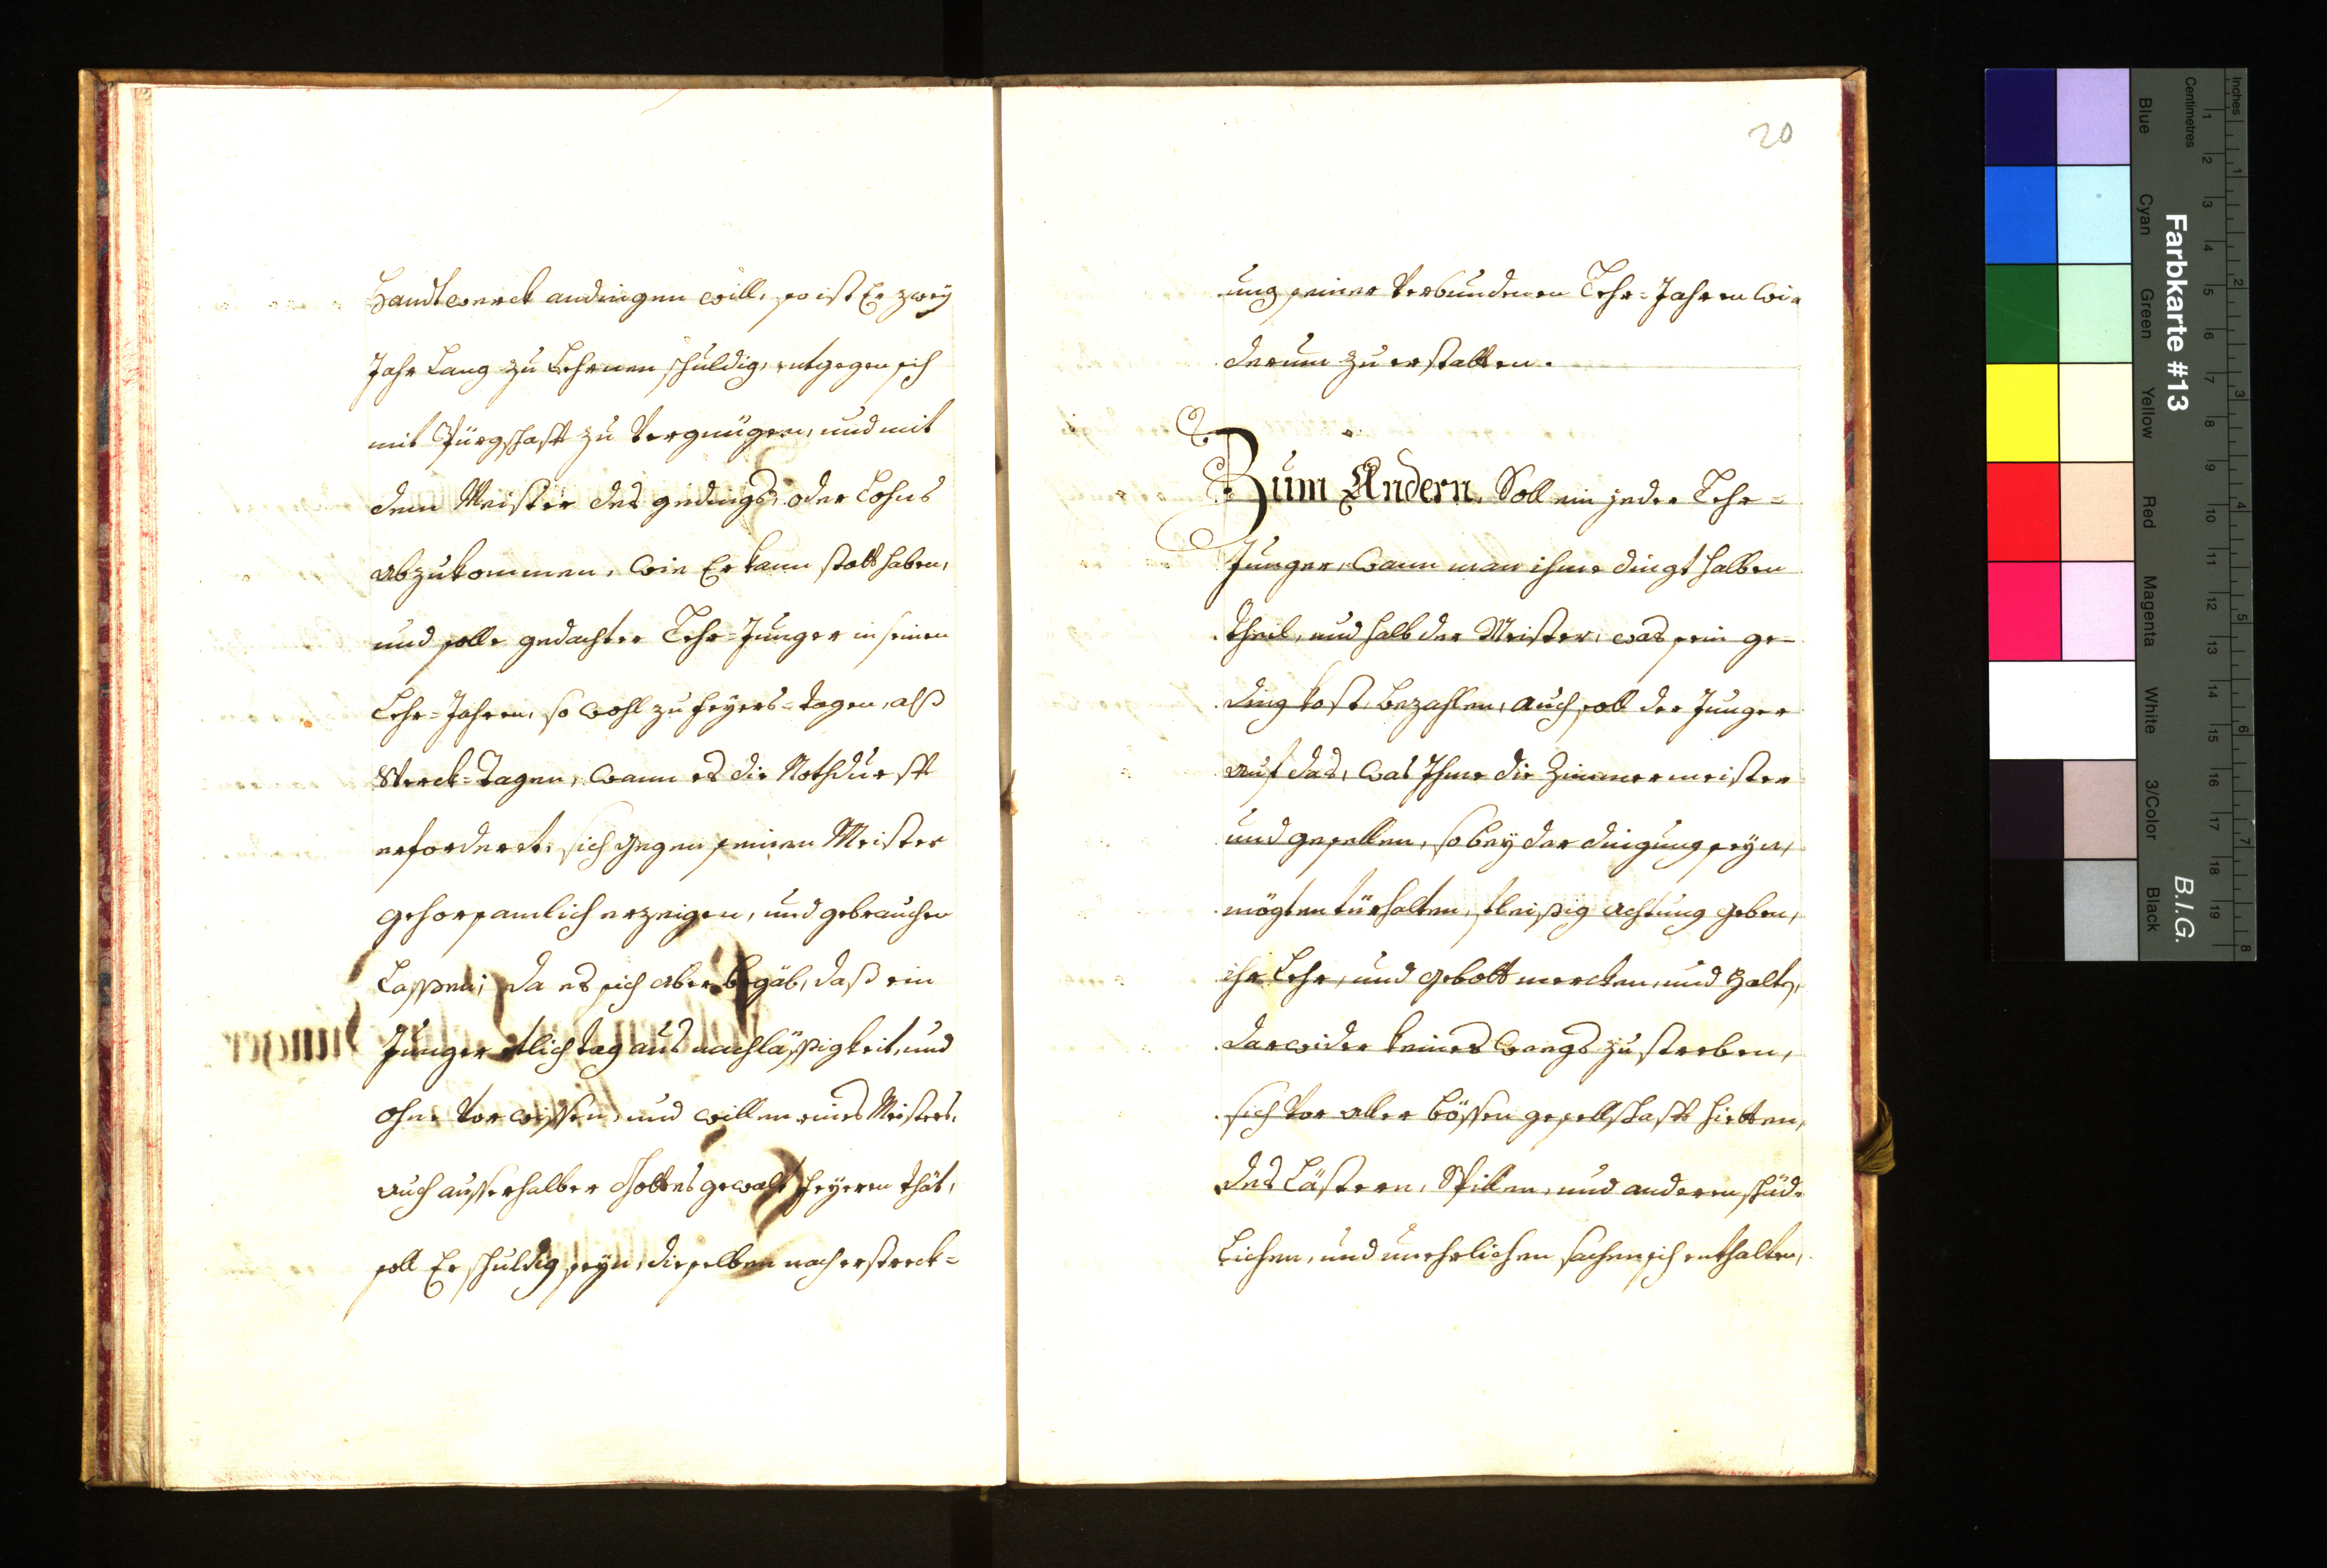 Handtwerck andingen will, so ist Er zweÿ
Jahr Lang zu Lehrnen schuldig, entgegen sich
mit Bürgschafft zu Vergnügen, und mit
dem Meister des gedings, oder Lohns
abzukommen, wie Er kann statt haben,
und solle gedachter Lehr-Junger in seinen
Lehr-Jahren, so wohl zu feÿers-tagen, alß
Werck-Tagen, wann es die Nothdurfft
erfordert, sich gegen seinen Meister
gehorsamlich erzeigen, und gebrauchen
Lassen; da es sich aber begäb, daß ein
Junger etlich tag aus nachläßigkeit, und
ohne Vorwissen, und willen eines Meisters,
auch ausserhalber Gottes gewalt feÿeren thät,
soll Er schuldig seÿn, dieselben nach erstreck-
20
ung seiner Verbundenen Lehr-Jahren wi-
derum zu erstatten.
Zum Andern. Soll ein jeder Lehr-
Junger, wann man ihme dingt halben
theil, und halb der Meister, was sein ge-
ding kost, bezahlen, auch soll der Junger
auf das, was Ihme die Zimmermeister
und gesellen, so beÿ der dingung seÿn,
mögten fürhalten, fleißig achtung geben,
ihr Lehr, und gebott mercken, und halten,
darwider keines weegs zu streben,
sich vor aller bössen gesellschafft hietten,
des Lästern, Spillen, und anderen schäd-
Lichen, und unehrlichen sachen sich enthalten,
Farbkarte #13
B.I.G.
Inches
Centimetres
Blue
Cyan
Green
Yellow
Red
Magenta
White
3/Color
Black
1 2 3 4 5 6 7 8 9 10 11 12 13 14 15 16 17 18 19
1 2 3 4 5 6 7 8